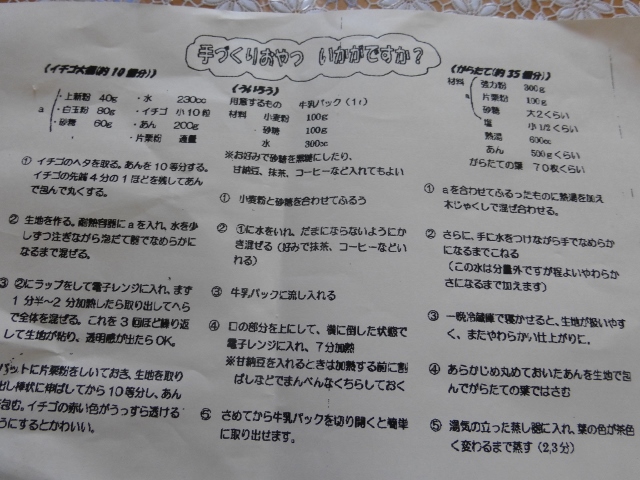 手づくりおやつ いかがですか？
（イチゴ大福(約10個分)）
・上新粉 40g ・水 230cc
a ・白玉粉 80g ・イチゴ 小10粒
・砂糖 60g ・あん 200g
・片栗粉 適量
① イチゴのヘタを取る。あんを10等分する。
イチゴの先端4分の1ほどを残してあん
で包んで丸くする。
② 生地を作る。耐熱容器にaを入れ、水を少
しずつ注ぎながら泡だて器でなめらかに
なるまで混ぜる。
③ ②にラップをして電子レンジに入れ、まず
1分半～2分加熱したら取り出してヘラ
で全体を混ぜる。これを3回ほど繰り返
して生地が粘り、透明感が出たらOK。
バットに片栗粉をしいておき、生地を取り
出し棒状に伸ばしてから10等分し、あん
を包む。イチゴの赤い色がうっすら透ける
うにするとかわいい。
（ういろう）
用意するもの 牛乳パック（1ℓ）
材料 小麦粉 100g
砂糖 100g
水 300cc
※お好みで砂糖を黒糖にしたり、
甘納豆、抹茶、コーヒーなど入れてもよい
① 小麦粉と砂糖を合わせてふるう
② ①に水をいれ、だまにならないようにか
き混ぜる（好みで抹茶、コーヒーなどい
れる）
③ 牛乳パックに流し入れる
④ 口の部分を上にして、横に倒した状態で
電子レンジに入れ、7分加熱
※甘納豆を入れるときは加熱する前に割
ばしなどでまんべんなくちらしておく
⑤ さめてから牛乳パックを切り開くと簡単
に取り出せます。
（がらたて(約35個分)）
材料 強力粉 300g
a 片栗粉 100g
砂糖 大2くらい
塩 小1/2くらい
熱湯 600cc
あん 500gくらい
がらたての葉 70枚くらい
① aを合わせてふるったものに熱湯を加え
木じゃくしで混ぜ合わせる。
② さらに、手に水をつけながら手でなめらか
になるまでこねる
（この水は分量外ですが程よいやわらか
さになるまで加えます）
③ 一晩冷蔵庫で寝かせると、生地が扱いやす
く、またやわらかい仕上がりに。
④ あらかじめ丸めておいたあんを生地で包
んでがらたての葉ではさむ
⑤ 湯気の立った蒸し器に入れ、葉の色が茶色
く変わるまで蒸す（2,3分）